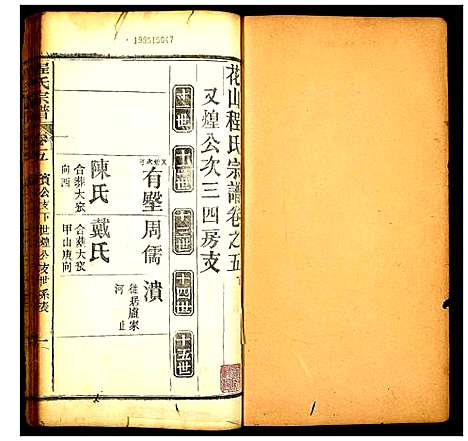 199515047
花山程氏宗譜卷之五
又煌公次三四房支
十一世
十二世
十三世
十四世
十五世
有壂
陳氏
合葬大窊
向西
周儒
戴氏
合葬大窊
甲山庚向
潰
徙居盧家
河止
程氏宗譜
卷五
賓公支下世煌公支世系表
一